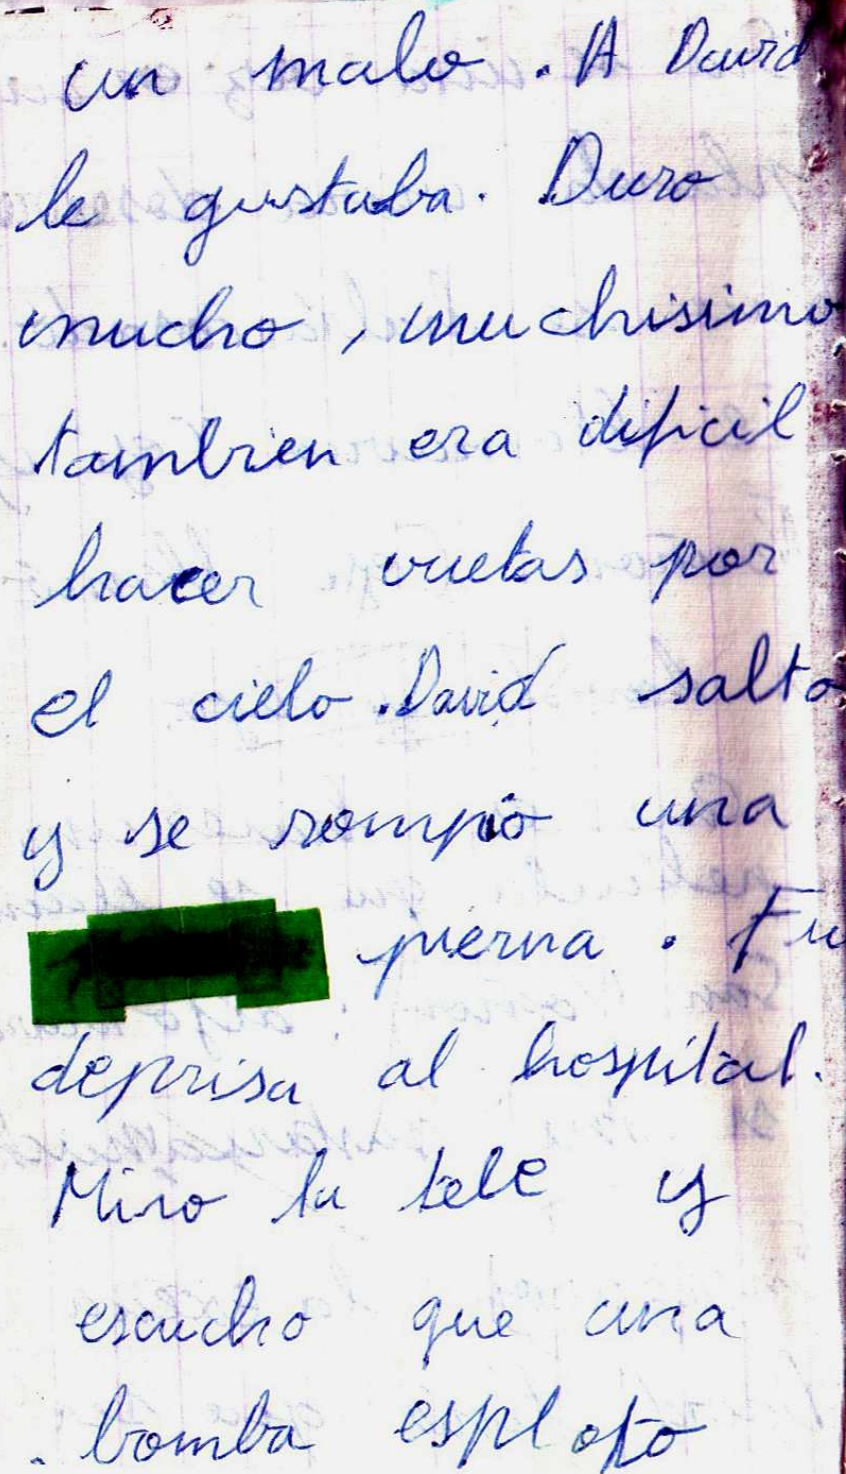 un malo. A David
le gustaba. Duro
mucho, muchisimo
tambien era dificil
hacer vueltas por
el cielo. David salto
y se rompio una
pierna. Fu
deprisa al hospital.
Miro la tele y
escucho que una
. bomba esploto